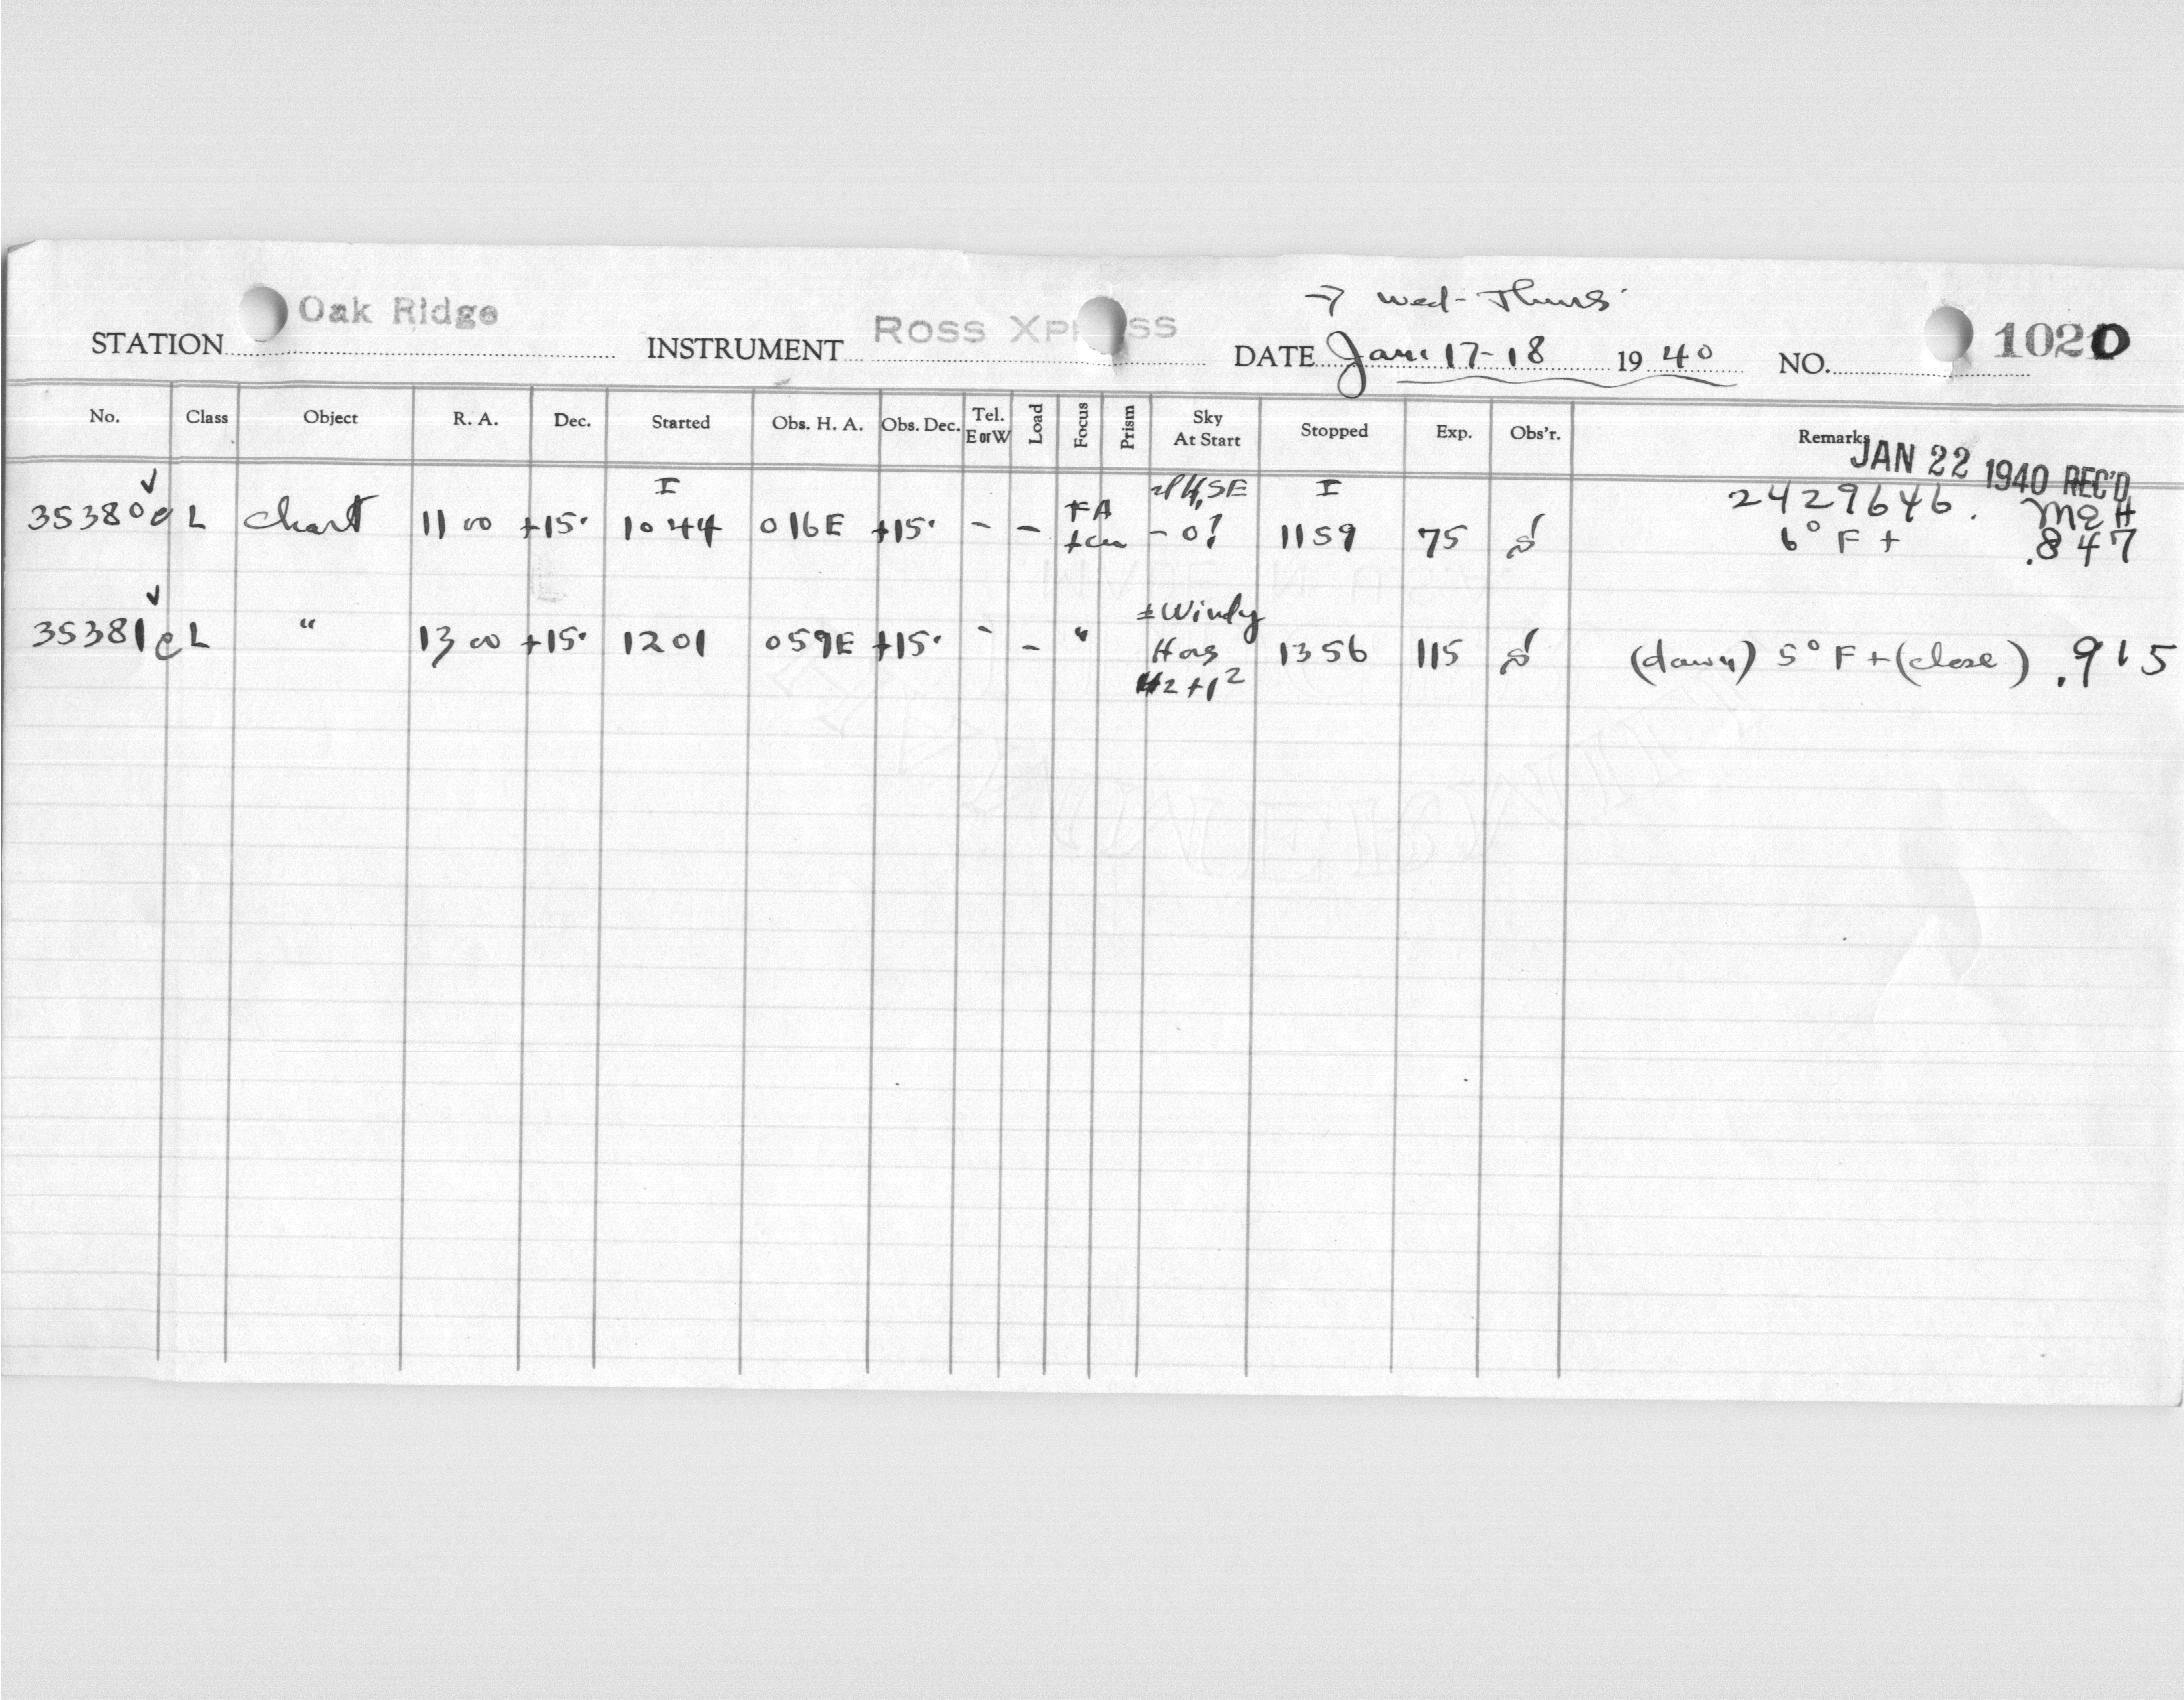 → Wed-Thurs
STATION Oak Ridge INSTRUMENT ROSS XPRESS DATE Jan. 17-18 1940 NO. 1020
No. Class Object R. A. Dec. Started Obs. H. A. Obs. Dec. Tel. E or W Load Focus Prism Sky At Start Stopped Exp. Obs'r. Remarks
JAN 22 1940 REC'D
I SE I 2429646. MQH
35380 c L chart 11 00 +15° 1044 016E +15° - - FA - 0? 1159 75 6° F + .847
± Windy
35381 c L " 13 00 +15° 1201 059E +15° - - " 1356 115 (dawn) 5° F + (close) .915
#2 +1²